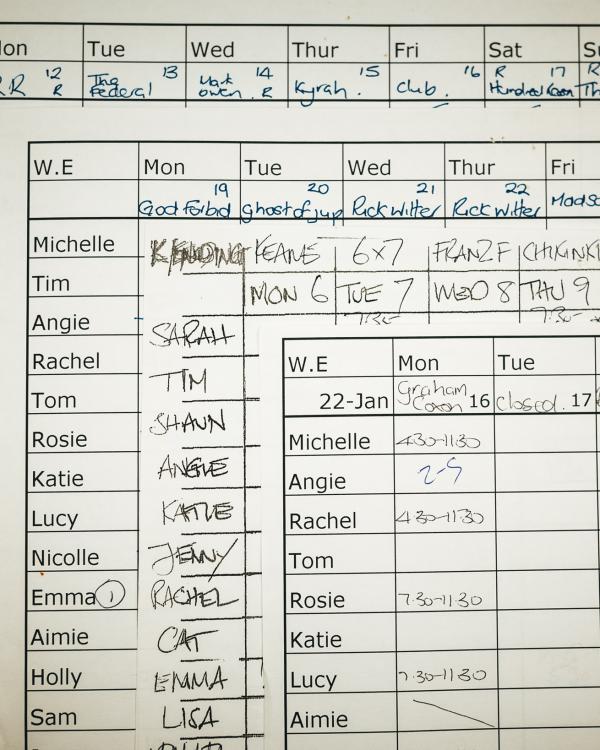 Mon Tue Wed Thur Fri Sat Su
R 12 13 14 15 16 R 17 R
R The Federal Mark Owen. R Kyrah. Club. Hundred Th
W.E Mon Tue Wed Thur Fri
19 20 21 22
God Forbid Ghost of Jup Rick Witter Rick Witter
Michelle KEANE 6x7 FRANZ F CHIKINKI
Tim MON 6 TUE 7 WED 8 THU 9
Angie SARAH 7.30- 7.30-
Rachel TIM
Tom SHAUN
Rosie ANGIE
Katie KATIE
Lucy JENNY
Nicolle RACHEL
Emma 1 CAT
Aimie EMMA
Holly LISA
Sam
W.E Mon Tue
22-Jan Graham Coxon 16 Closed. 17
Michelle 4.30-11.30
Angie 2-5
Rachel 4.30-11.30
Tom
Rosie 7.30-11.30
Katie
Lucy 7.30-11.30
Aimie